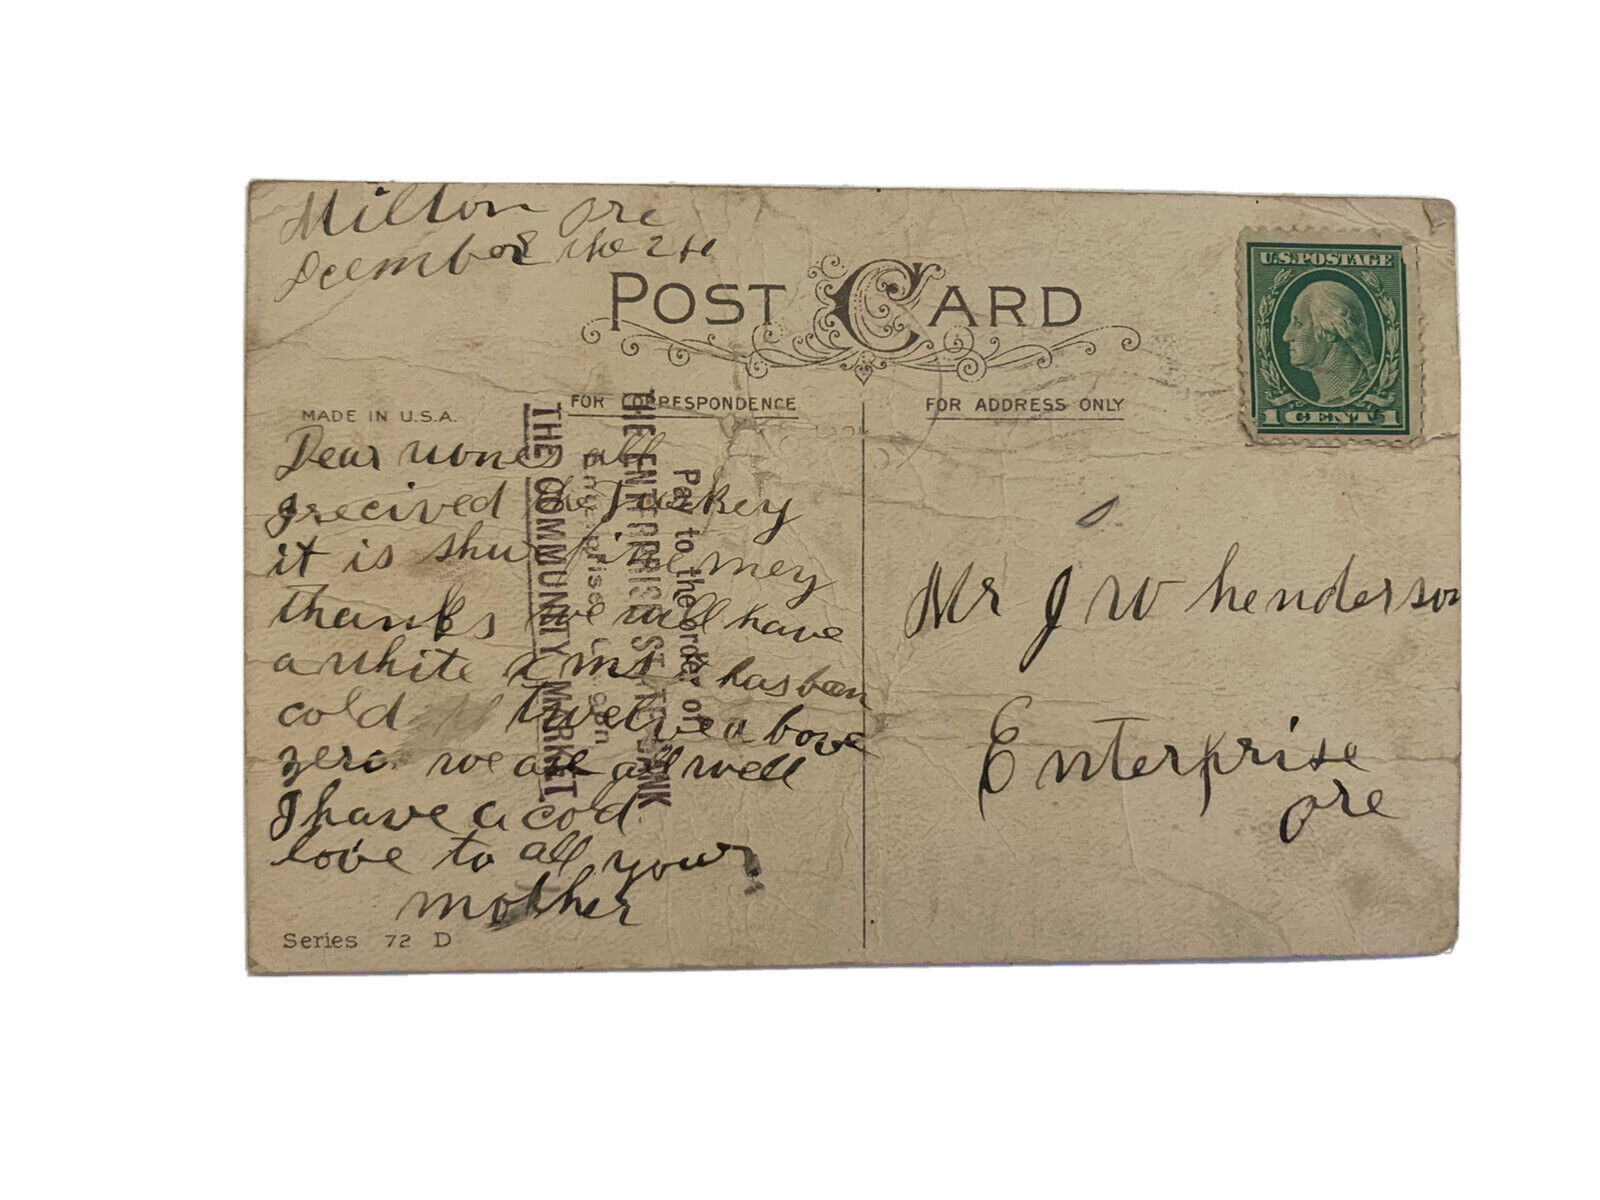 Milton Ore
December the 24
POST CARD
U.S. POSTAGE
1 CENT 1
MADE IN U.S.A.
FOR CORRESPONDENCE
FOR ADDRESS ONLY
Dear all
I recived the Turkey
it is shur fine mey
thanks we will have
a white xms has been
cold twelve above
zero we are all well
I have a cold
love to all your
mother
Series 72 D
Pay to the order of
THE ENTERPRISE STATE BANK
Enterprise, Oregon
THE COMMUNITY MARKET
Mr J W henderson
Enterprise
ore